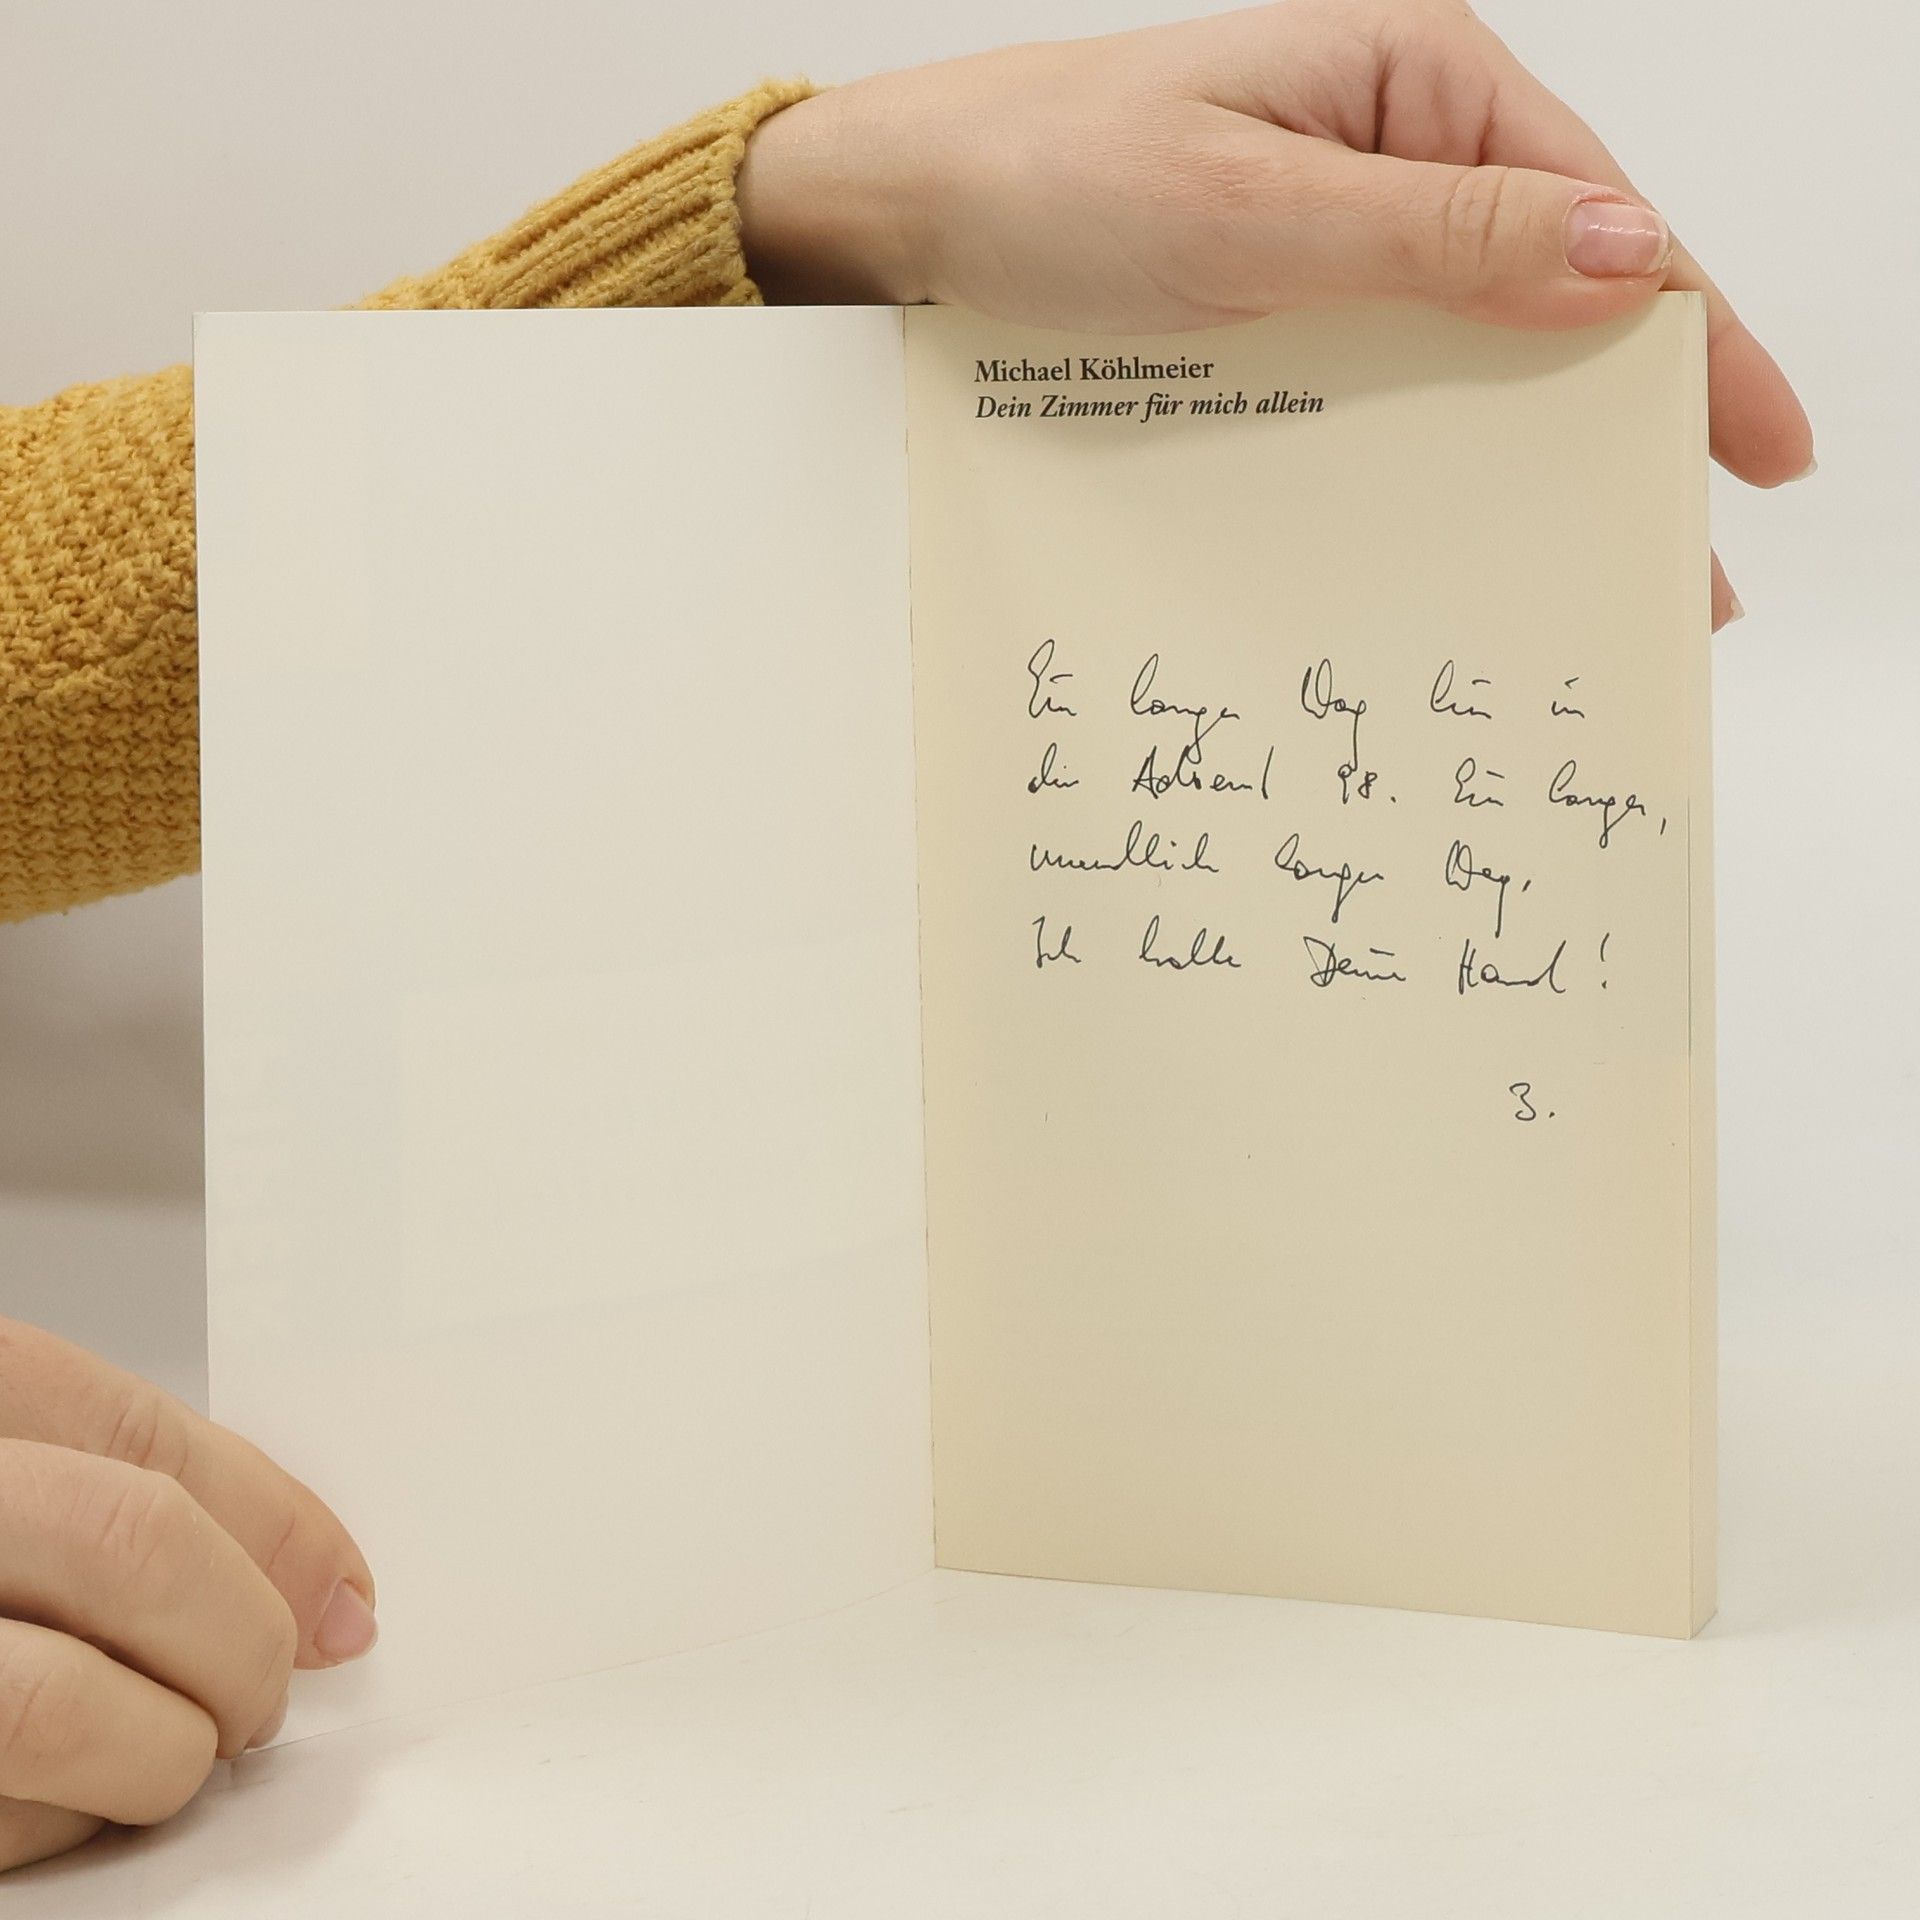 Michael Köhlmeier
Dein Zimmer für mich allein
Ein langer Weg hin in
den Advent 98. Ein langer,
unendlich langer Weg.
Ich halte Deine Hand!
3.